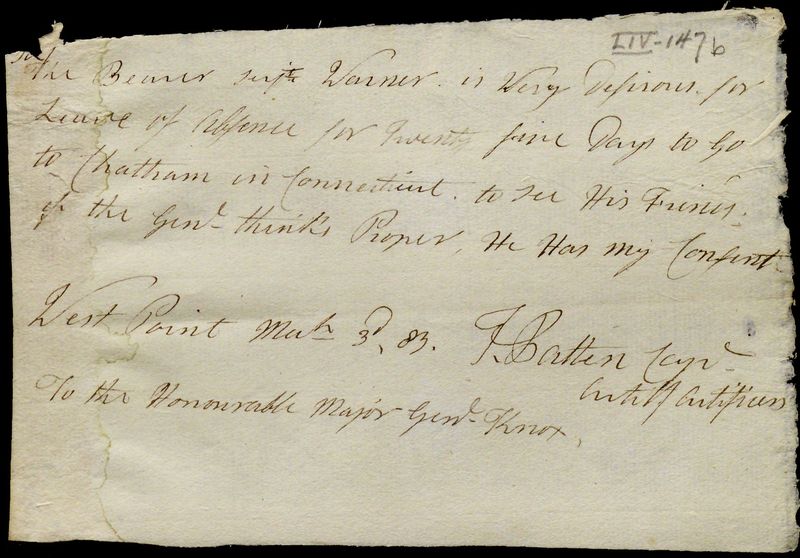 LIV-147b
Sir
The Bearer serjt Warner is Very Desirous for
Leave of Absence for Twenty five Days to Go
to Chatham in Connecticut to see His Friends.
if the Genl. thinks Proper, He Has my Consent
West Point Mach 3d, 83. T. Patten Capt
Artill Artificers
To the Honourable Major Genl. Knox,